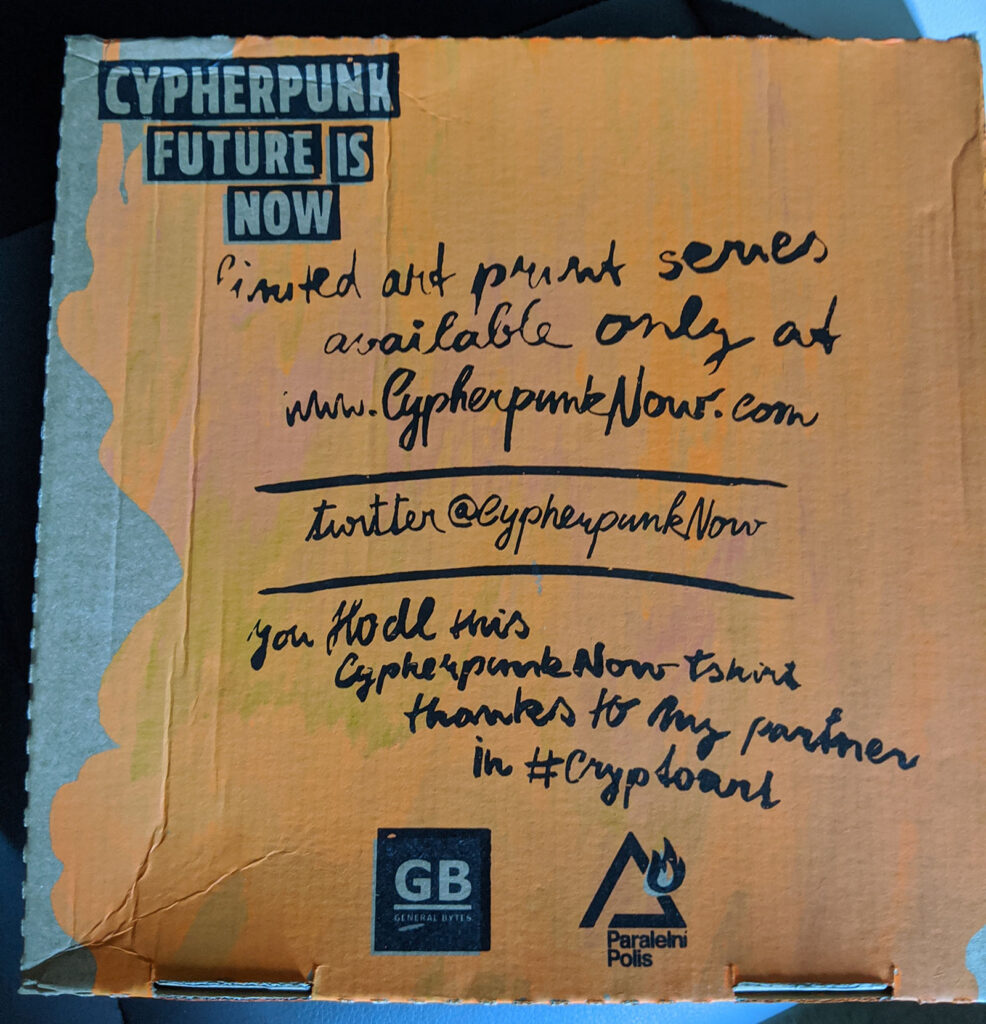 CYPHERPUNK
FUTURE IS
NOW
limited art print series
available only at
www.CypherpunkNow.com
twitter@CypherpunkNow
you Hodl this
CypherpunkNow tshirt
thanks to my partner
in #Cryptoart
GB
GENERAL BYTES
Paralelni
Polis